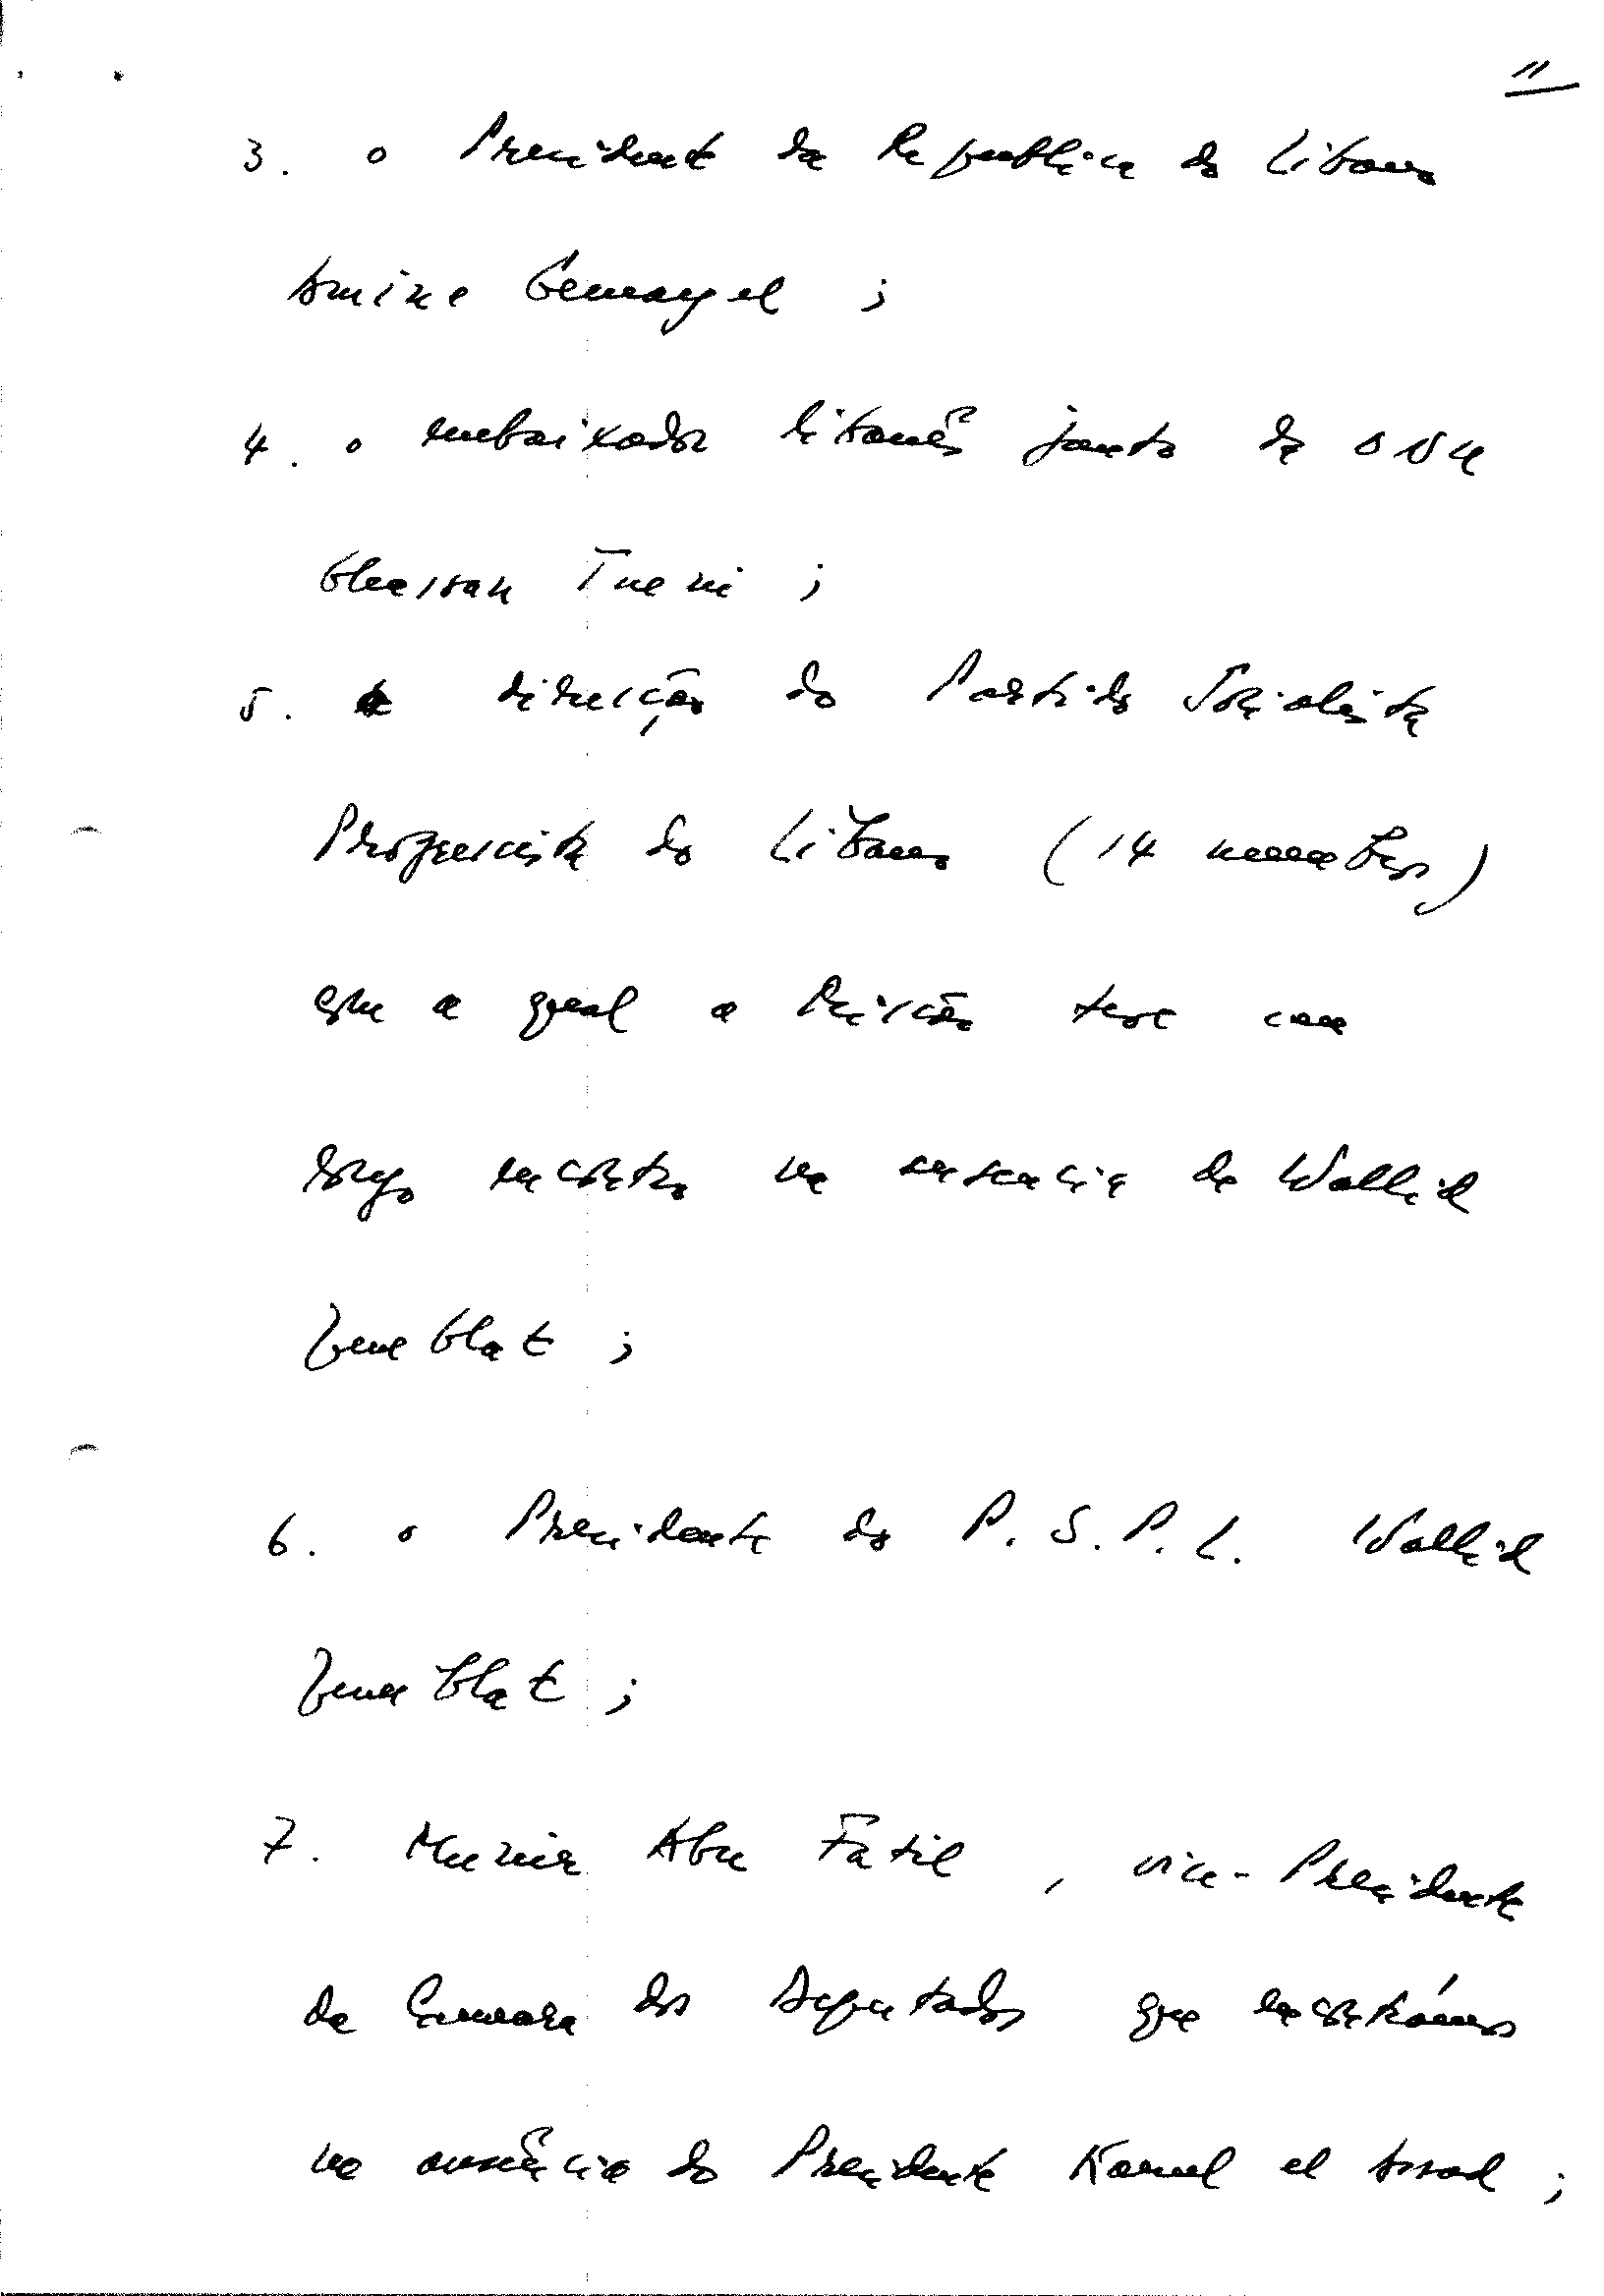 11
3. o Presidente da Republica do Libano
Amine Gemayel ;
4. o embaixador libanês junto da ONU
Ghassan Tueni ;
5. a direcção do Partido Socialista
Progressista do Libano (14 membros)
com a qual a Missão teve um
longo encontro na residencia de Wallid
Jumblat ;
6. o Presidente do P.S.P.L. Wallid
Jumblat ;
7. Munir Abu Fatil , vice-Presidente
da Camara dos Deputados que encontrámos
na ausência do Presidente Kamel el Assad ;